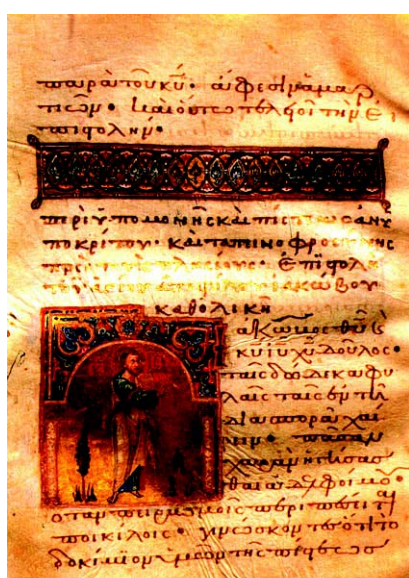 παρὰ τοῦ κῡ· ἄφεσιν ἁμαρ
τιῶν· καὶ οὕτως τελεοῖ τὴν ἐ
πιστολήν·
περὶ ὑπομονῆς καὶ πίστεως ἀνυ
ποκρίτου· καὶ ταπινοφροσύνης
πρὸς τοὺς πλησίους· ἐπιστολὴ
ἰακώβου
καθολικὴ
ακωβος θῡ καὶ
κῡ ῑῡ χῡ δοῦλος·
ταῖς δώδεκα φυ
λαῖς ταῖς ἐν τῆ
διασπορᾶ χαί
ρειν· πᾶσαν
χαρὰν ἡγήσασ
θαι ἀδελφοί μου·
ὅταν πειρασμοῖς
ποικίλοις· γινώσκοντες ὅτι τὸ
δοκίμιον ὑμῶν τῆς πίστεως